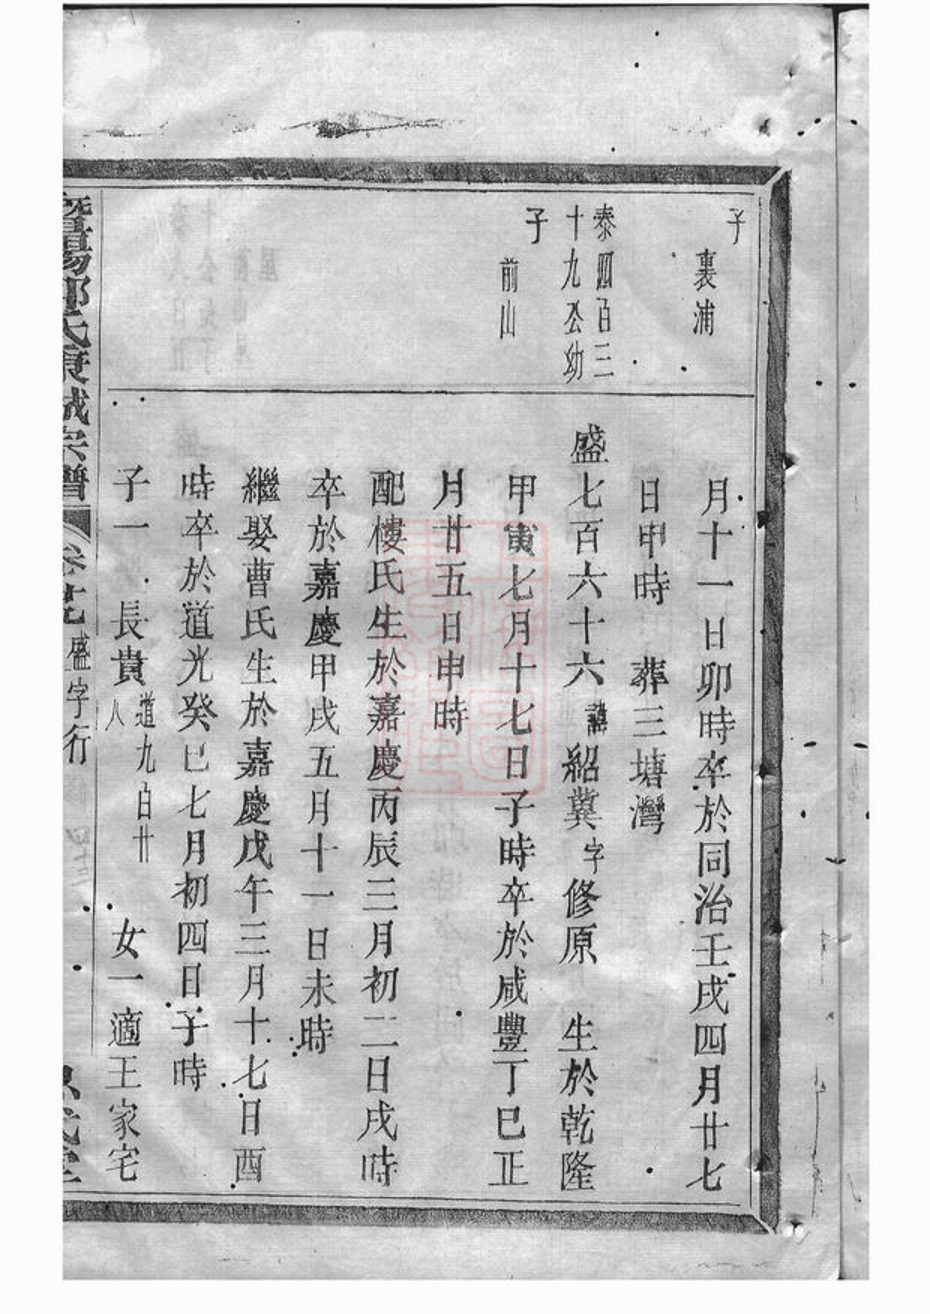 子
裏浦
泰四百三
十九公幼
子
前山
月十一日卯時卒於同治壬戌四月廿七
日申時 葬三塘灣
盛七百六十六諱紹冀字修原 生於乾隆
甲寅七月十七日子時卒於咸豐丁巳正
月廿五日申時
配樓氏生於嘉慶丙辰三月初二日戌時
卒於嘉慶甲戌五月十一日未時
繼娶曹氏生於嘉慶戊午三月十七日酉
時卒於道光癸巳七月初四日子時
子一 長貴道九百廿八 女一適王家宅
暨陽 氏 宗譜 卷 盛字行